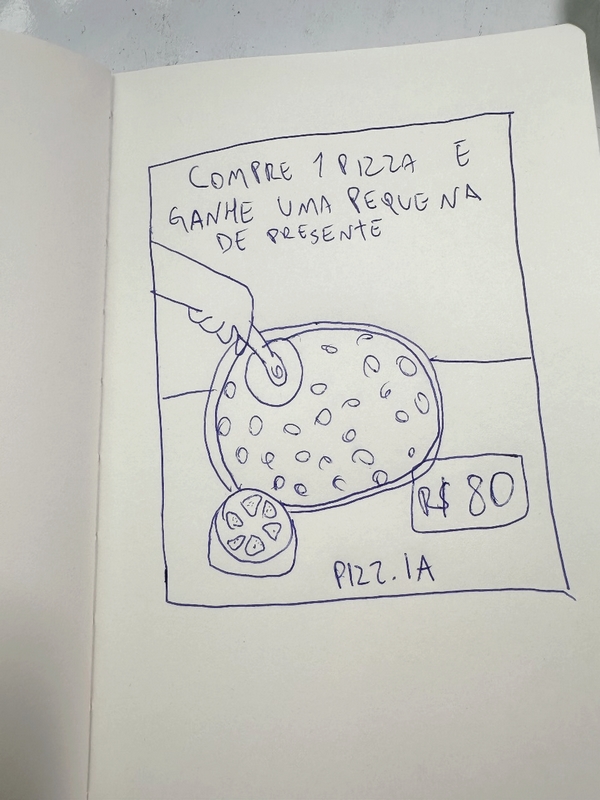 COMPRE 1 PIZZA E
GANHE UMA PEQUENA
DE PRESENTE
R$ 80
PIZZ.IA